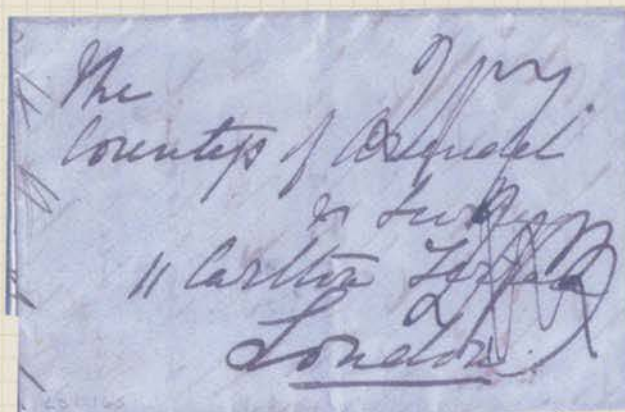 The
Countess of Arundel
& Surrey
11 Carlton Terrace
London